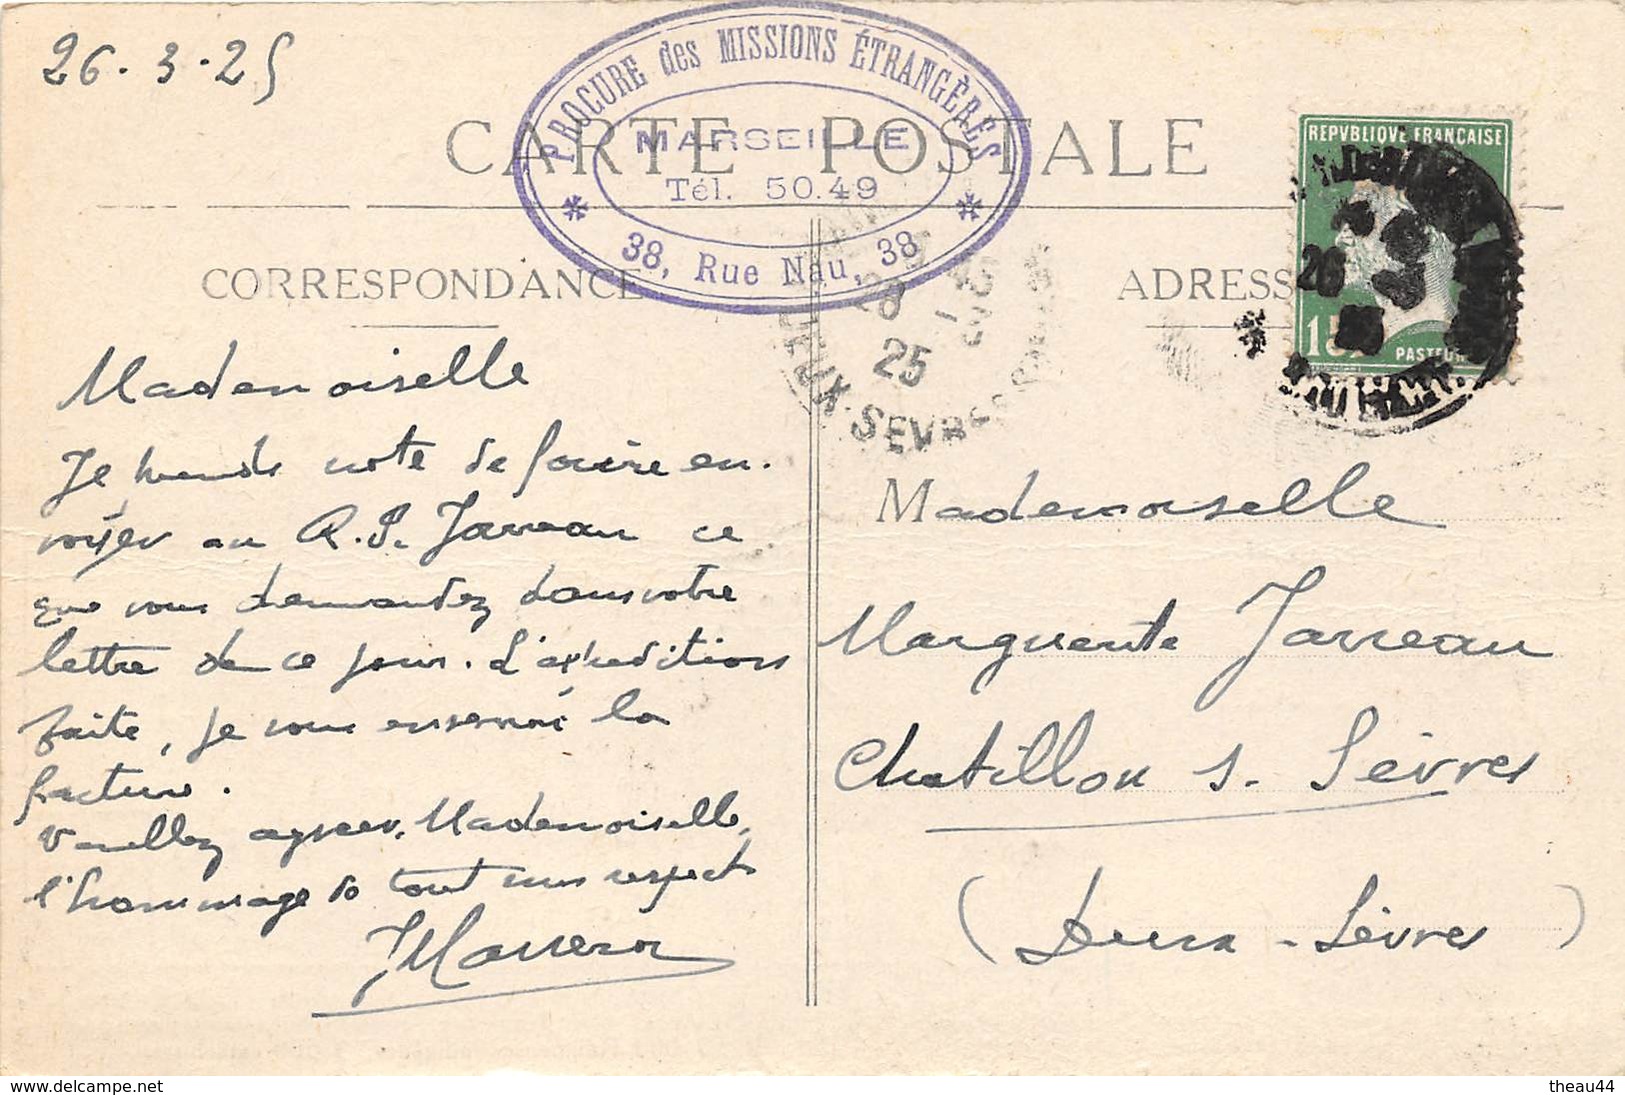 26.3.25
PROCURE des MISSIONS ÉTRANGÈRES
MARSEILLE
Tél. 50.49
38, Rue Nau, 38
CARTE POSTALE
CORRESPONDANCE
ADRESS
REPVBLIQVE FRANCAISE
15
PASTEUR
28
25
DEUX-SEVRES
26
Mademoiselle
Je prends note de faire en-
voyer au R.P. Jarreau ce
que vous demandez dans votre
lettre de ce jour. L'expédition
faite, je vous enverrai la
facture.
Veuillez agréer, Mademoiselle,
l'hommage de tout mon respect
Mademoiselle
Marguerite Jarreau
Chatillon s. Sèvres
(Deux-Sèvres)
www.delcampe.net
theau44